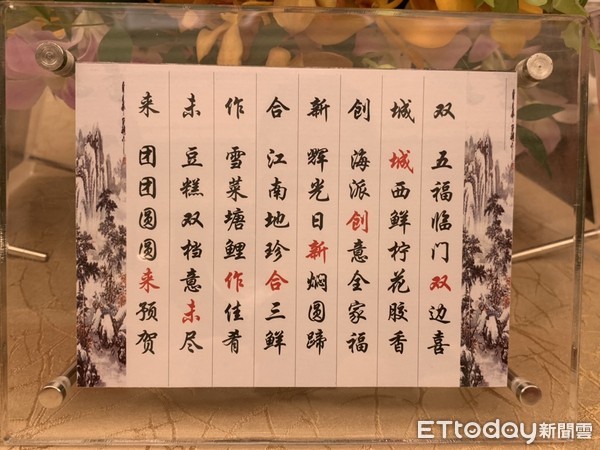 双 五福临门双边喜
城 城西鲜柠花胶香
创 海派创意全家福
新 辉光日新焖圆蹄
合 江南地珍合三鲜
作 雪菜塘鲤作佳肴
未 豆糕双档意未尽
来 团团圆圆来预贺
ETtoday新聞雲